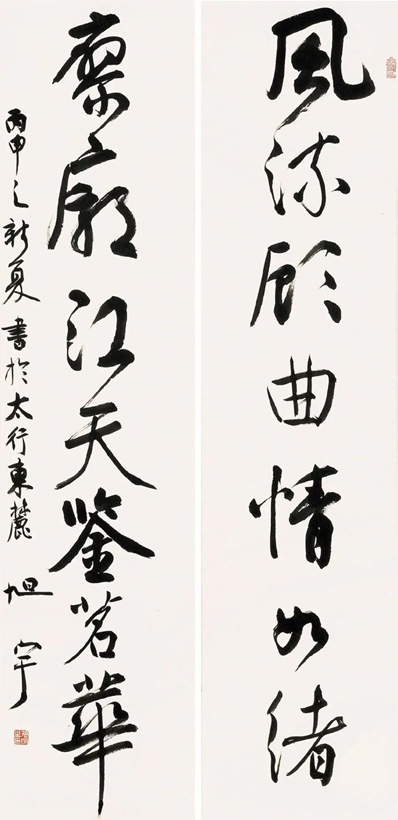 風流顧曲情如緒
寥廓江天鑒茗華
丙申之新夏書於太行東麓 旭宇